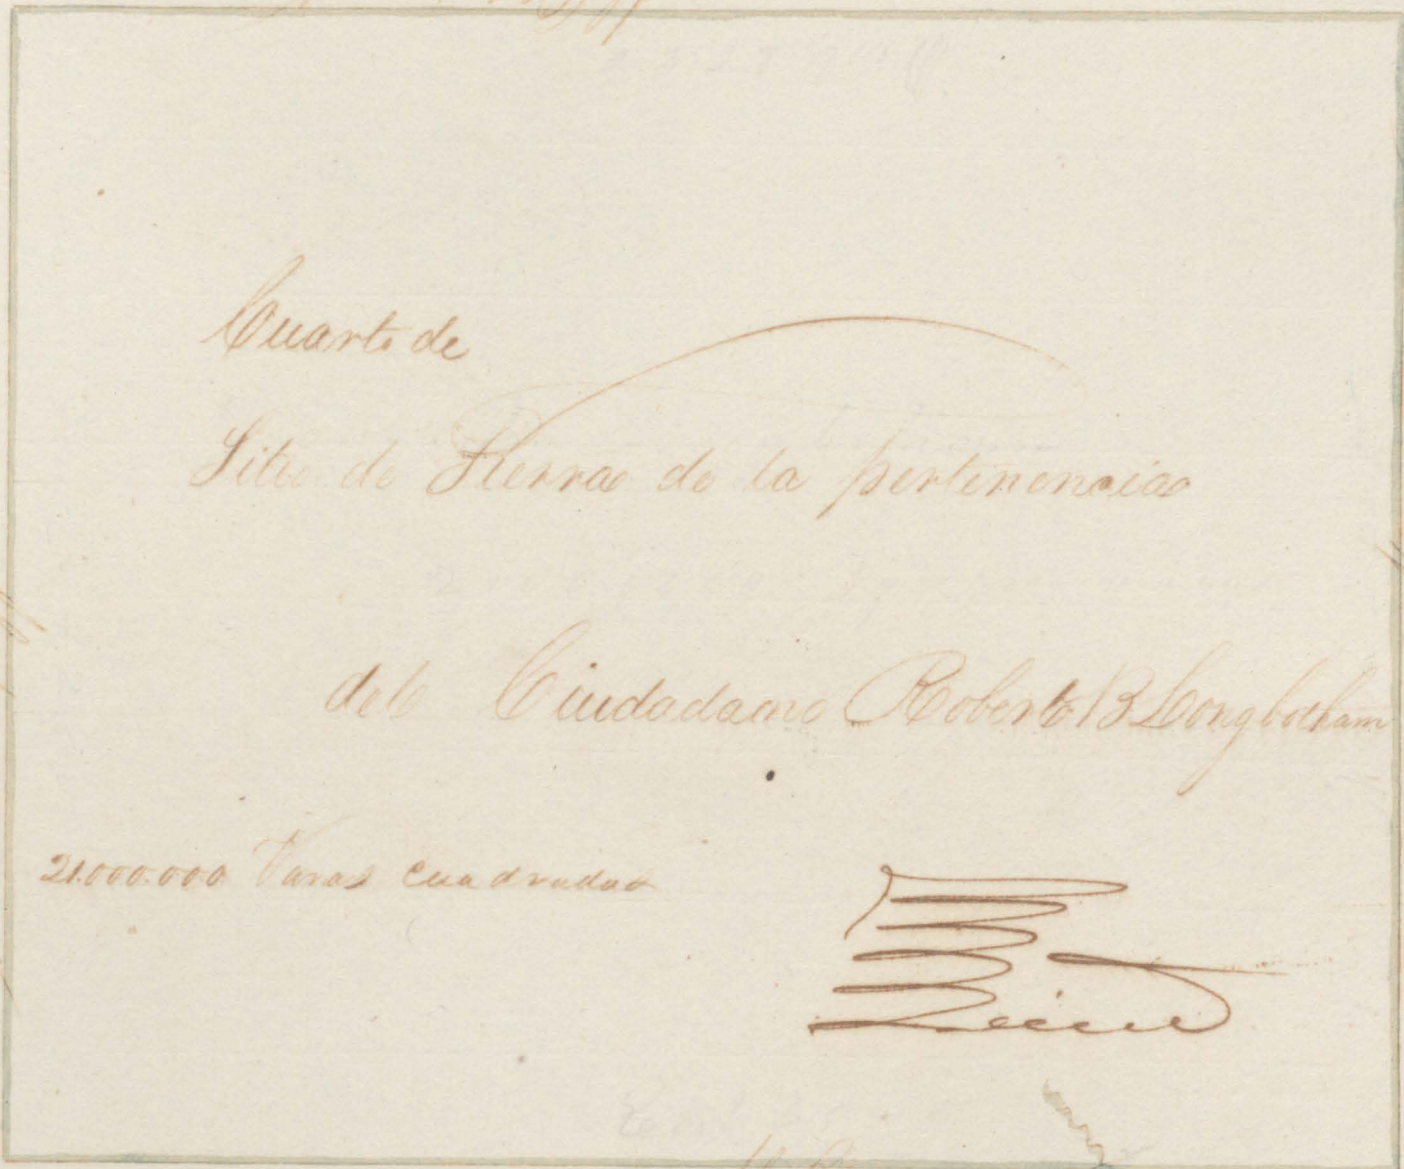 Cuarto de
Sitio de Tierra de la pertenencia
del Ciudadano Roberto B Longbotham
21.000.000 Varas cuadradas